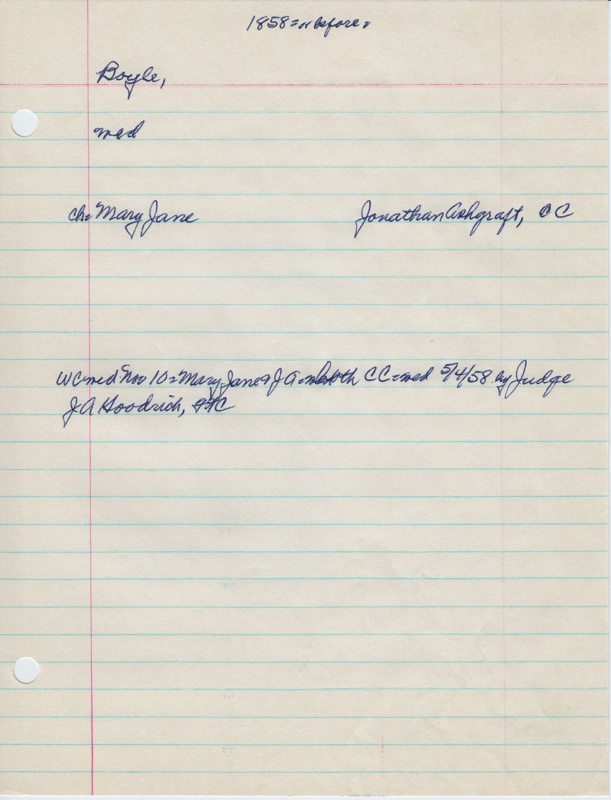 1858 = or before.
Boyle,
med
ch: Mary Jane Jonathan Ashgraft, CC
WC med Nov 10 = Mary Jane & J A = both CC = med 5/4/58 by Judge
J. A Hoodrich,